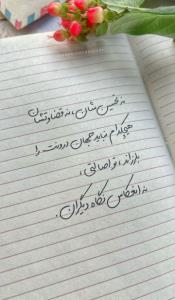 نه تحسین‌شان، نه قضاوتشان
هیچکدام نباید جهان درونت را
بلرزاند، تو اصالتی،
نه انعکاس نگاه دیگران.